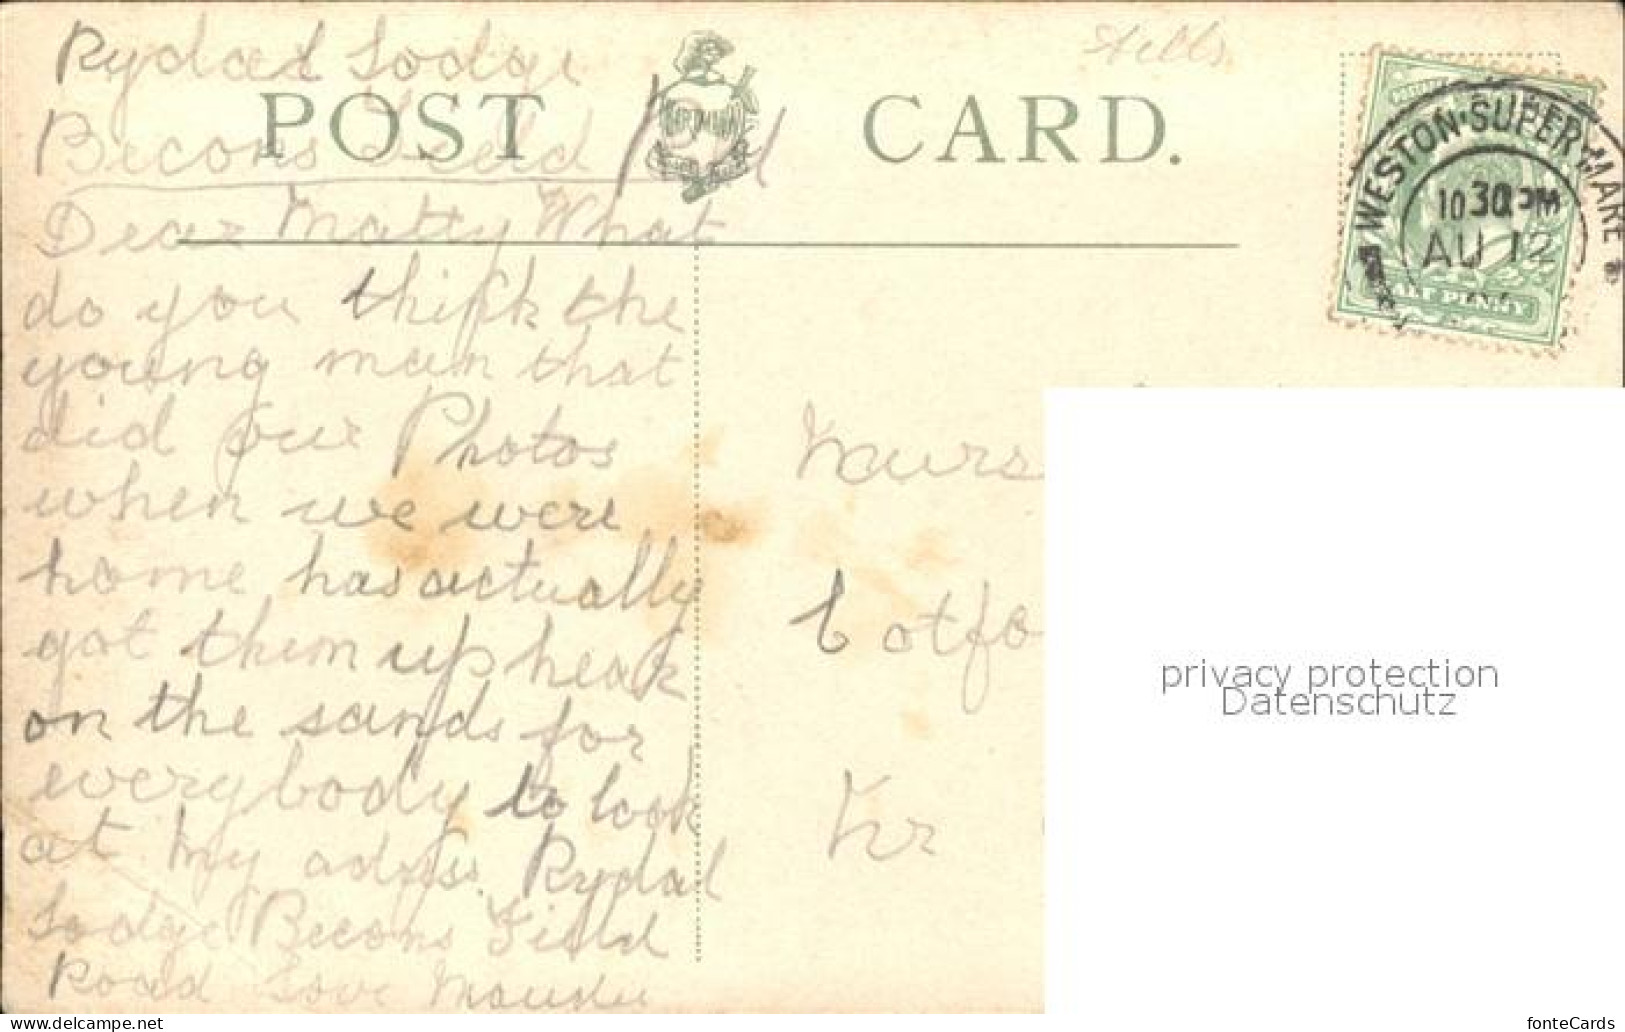 Rydal Lodge
Becons Field Rd
POST CARD.
WESTON-SUPER-MARE
10 30 PM
AU 12
HALF PENNY
Dear Matty What
do you think the
young man that
did our Photos
when we were
home has actually
got them up hear
on the sands for
everybody to look
at my adrss. Rydal
Lodge Becons Field
Road Love
Nurs
Cotfo
privacy protection
Datenschutz
fonteCards
www.delcampe.net